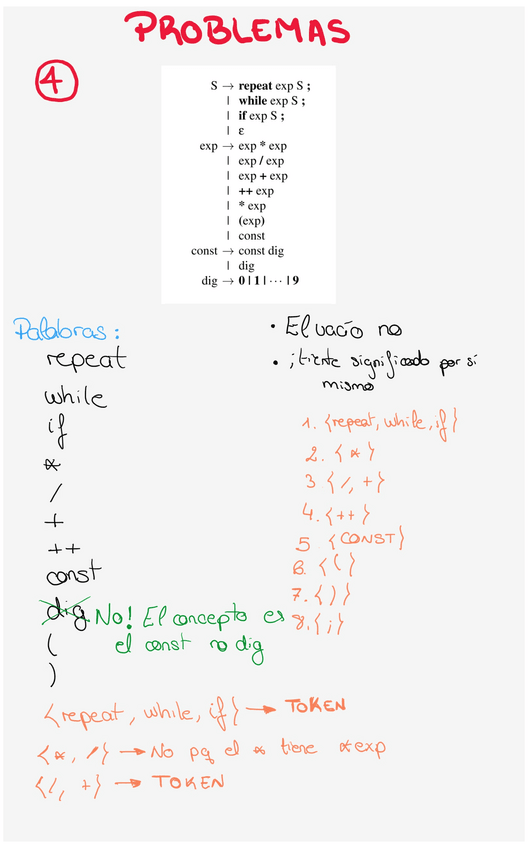 PROBLEMAS
4
S → repeat exp S ;
| while exp S ;
| if exp S ;
| ε
exp → exp * exp
| exp / exp
| exp + exp
| ++ exp
| * exp
| (exp)
| const
const → const dig
| dig
dig → 0 | 1 | ··· | 9
Palabras:
repeat
while
if
*
/
+
++
const
dig No! El concepto es
el const no dig
(
)
• El vacío no
• ; tiene significado por sí
mismo
1. {repeat, while, if}
2. {*}
3. {/, +}
4. {++}
5 {CONST}
6. {(}
7. {)}
8. {;}
{repeat, while, if} → TOKEN
{*, /} → No pq el * tiene *exp
{/, +} → TOKEN